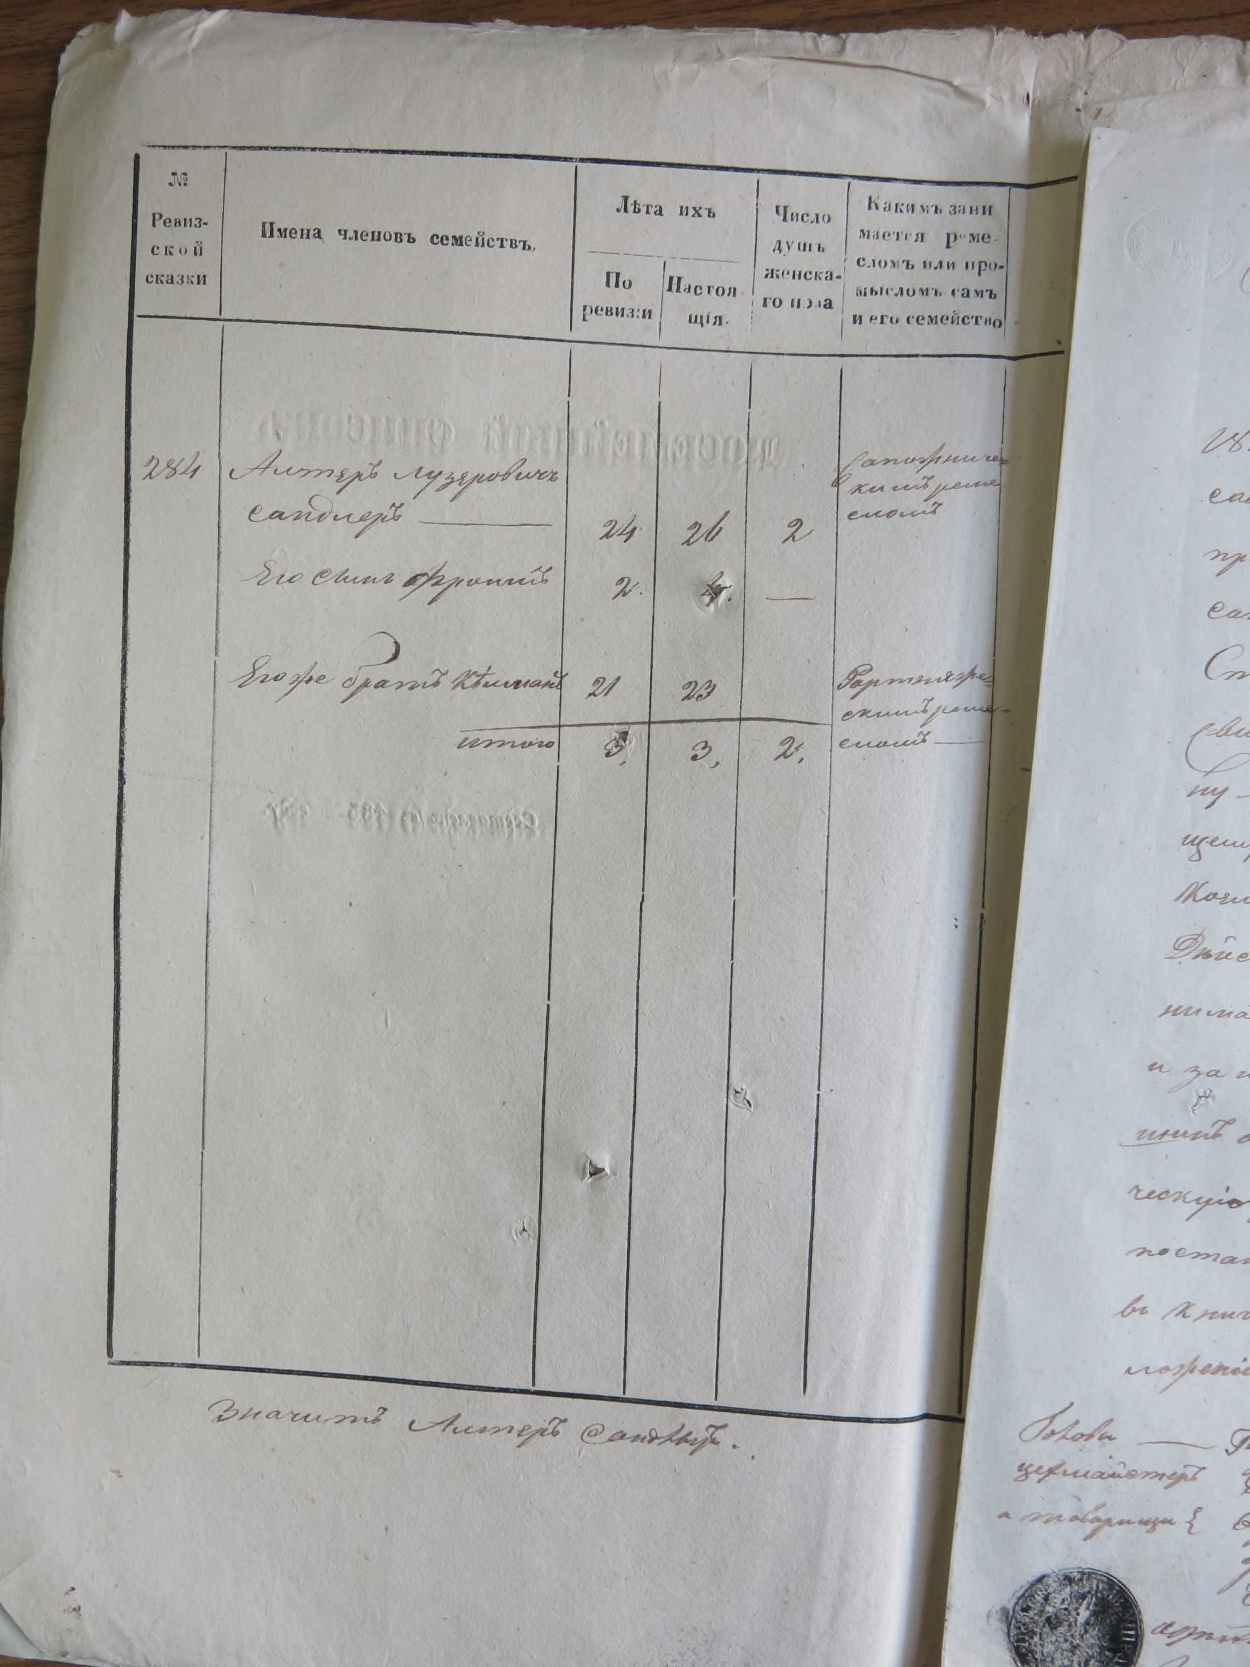 №
Ревиз-
ской
сказки
Имена членовъ семействъ.
Лѣта ихъ
По
ревизіи
Настоя-
щія.
Число
душъ
женска-
го пола
Какимъ зани
мается реме-
сломъ или про-
мысломъ самъ
и его семейство
ПОСЕМЕЙНЫЙ СПИСОКЪ
284
Алтеръ Лузеровичъ
Сандлеръ — 24. 26 2
Сапожничес
кимъ реме
сломъ
Его сынъ Фроимъ 2. 4. —
Его же братъ Кельманъ 21 23
Портняже-
скимъ реме-
сломъ —
итого 3, 3, 2,
Значитъ Алтеръ Сандлеръ.
са
пр
ну —
Дѣйс
нима
и за
ческую
постан
въ книг
ложені
Головы —
цехмайстеръ
а товарищи {